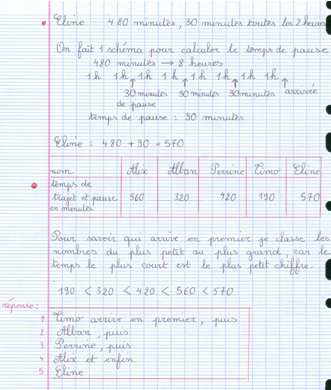 Eline 480 minutes, 30 minutes toutes les 2 heures
On fait 1 schéma pour calculer le temps de pause
480 minutes → 8 heures
1h 1h 1h 1h 1h 1h 1h 1h
30 minutes de pause 30 minutes 30 minutes arrivée
temps de pause : 90 minutes
Eline : 480 + 90 = 570
nom Alix Alban Perrine Timo Eline
temps de trajet et pause en minutes 560 320 420 190 570
Pour savoir qui arrive en premier je classe les
nombres du plus petit au plus grand, car le
temps le plus court est le plus petit chiffre.
190 < 320 < 420 < 560 < 570
réponse :
1 Timo arrive en premier, puis
2 Alban, puis
3 Perrine, puis
4 Alix et enfin
5 Eline